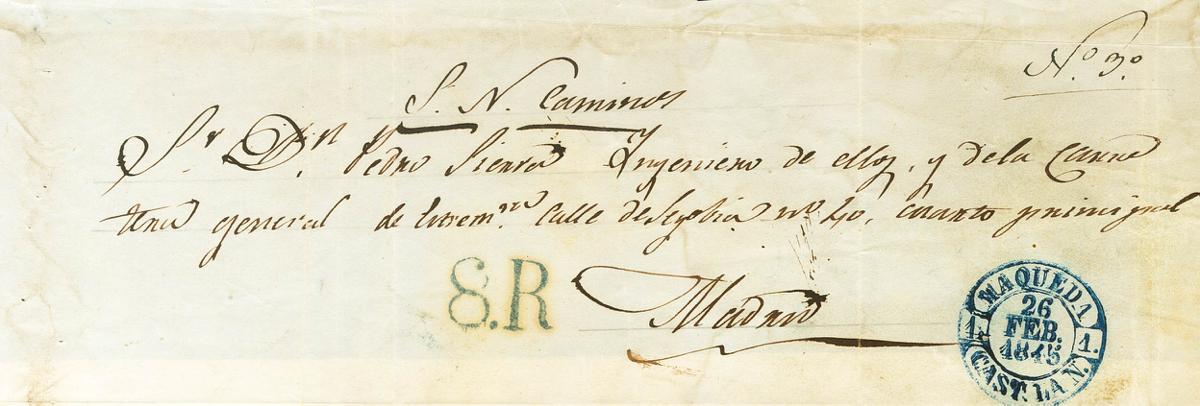 Nº 3º
S. N. Caminos
Sr. Dn. Pedro Sierra Ingeniero de ellos, y de la Carre
tera general de Extremra. Calle de Segobia nº 40, cuarto principal
Madrid
8.R
MAQUEDA
26
FEB.
1845
1. 1.
CAST. LA N.